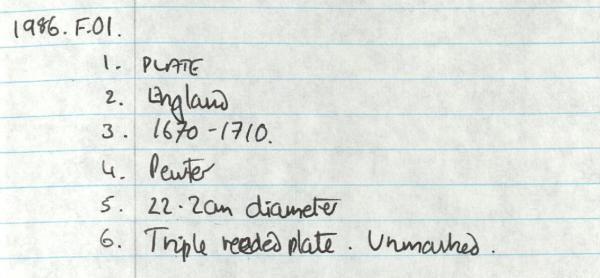 1986.F.01.
1. PLATE
2. England
3. 1670-1710.
4. Pewter
5. 22.2cm diameter
6. Triple reeded plate. Unmarked.